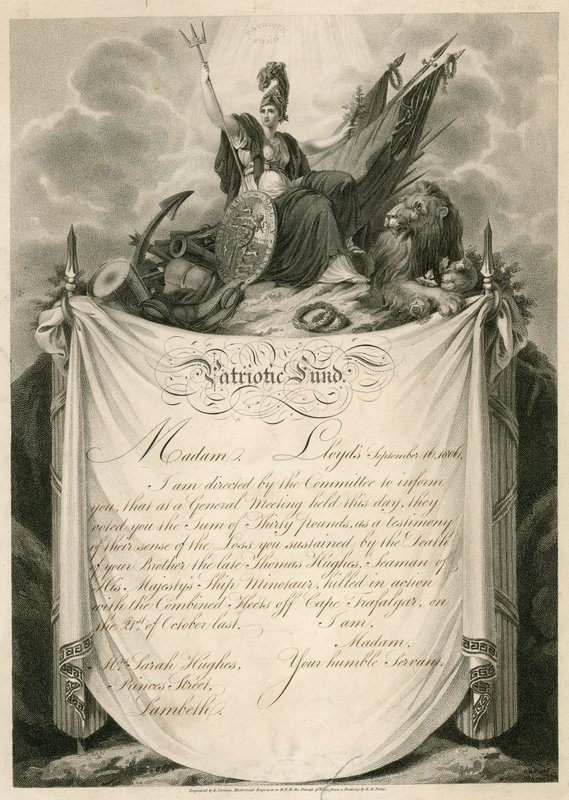 PATRIOTIC
FUND
Patriotic Fund.
Madam, Lloyd's September 16, 1806,
I am directed by the Committee to inform
you, that at a General Meeting held this day, they
voted you the Sum of Thirty pounds, as a testimony
of their sense of the Loss you sustained by the Death
of your Brother the late Thomas Hughes, Seaman of
His Majesty's Ship Minotaur, killed in action
with the Combined Fleets off Cape Trafalgar, on
the 21st of October last. I am,
Madam,
Mrs. Sarah Hughes, Your humble Servant.
Princes Street,
Lambeth.
Engraved by E. Scriven, Historical Engraver to H.R.H. the Princess of Wales, from a Drawing by R. K. Porter.